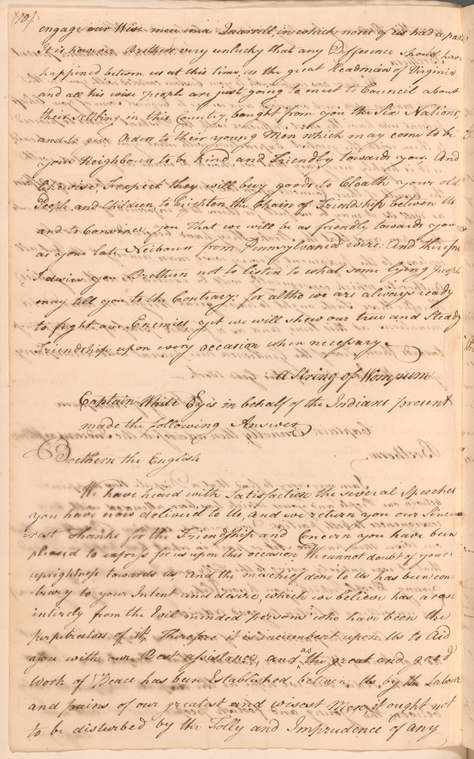 (10)
engage our Wise men in a Quarrell, in which none of us had a part
It is however Brethren very unlucky that any Difference should have
happined betwen us at this time, as the great Headman of Virginia
and all his wise people are just going to meet to Council about
their settling in this Country, bought from you the Six Nations,
and to give Orders to their young Men which may come to be
your Neighbours to be kind and Friendly towards you. And
likewise, I expect they will buy goods to Cloath your old
People and Children to brighten the Chain of Friendship between Us
and to Convince you that we will be as friendly towards you
as your late Neibours from Pennsylvania were. And therefore
I desire you Brethern not to listen to what some lying People
may tell you to the Contrary; for altho we are always ready
to fight our Enemies, yet we will shew our true and Steady
Friendship upon every occasion when necessary
A String of Wompum
Captain White Eyes in behalf of the Indians present
made the following Answer
Brethern the English
We have heard with Satisfaction the several Speeches
you have now delivered to Us, and we return you our Sincer
est thanks for the Friendship and Concern you have been
pleased to express for us upon this occasion We cannot doubt of your
uprightness towards Us and the mischief done to Us has been con
trary to your Intent and desire, which we believe has arose
intirely from the Evil minded persons who have been the
perpetrators of it. Therefore it is incumbent upon Us to Aid
you with our Best assistance, and as the great and good
Work of Peace has been Established between Us by the Labour
and pains of our greatest and wisest Men, it ought not
to be disturbed by the Folly and Imprudence of any